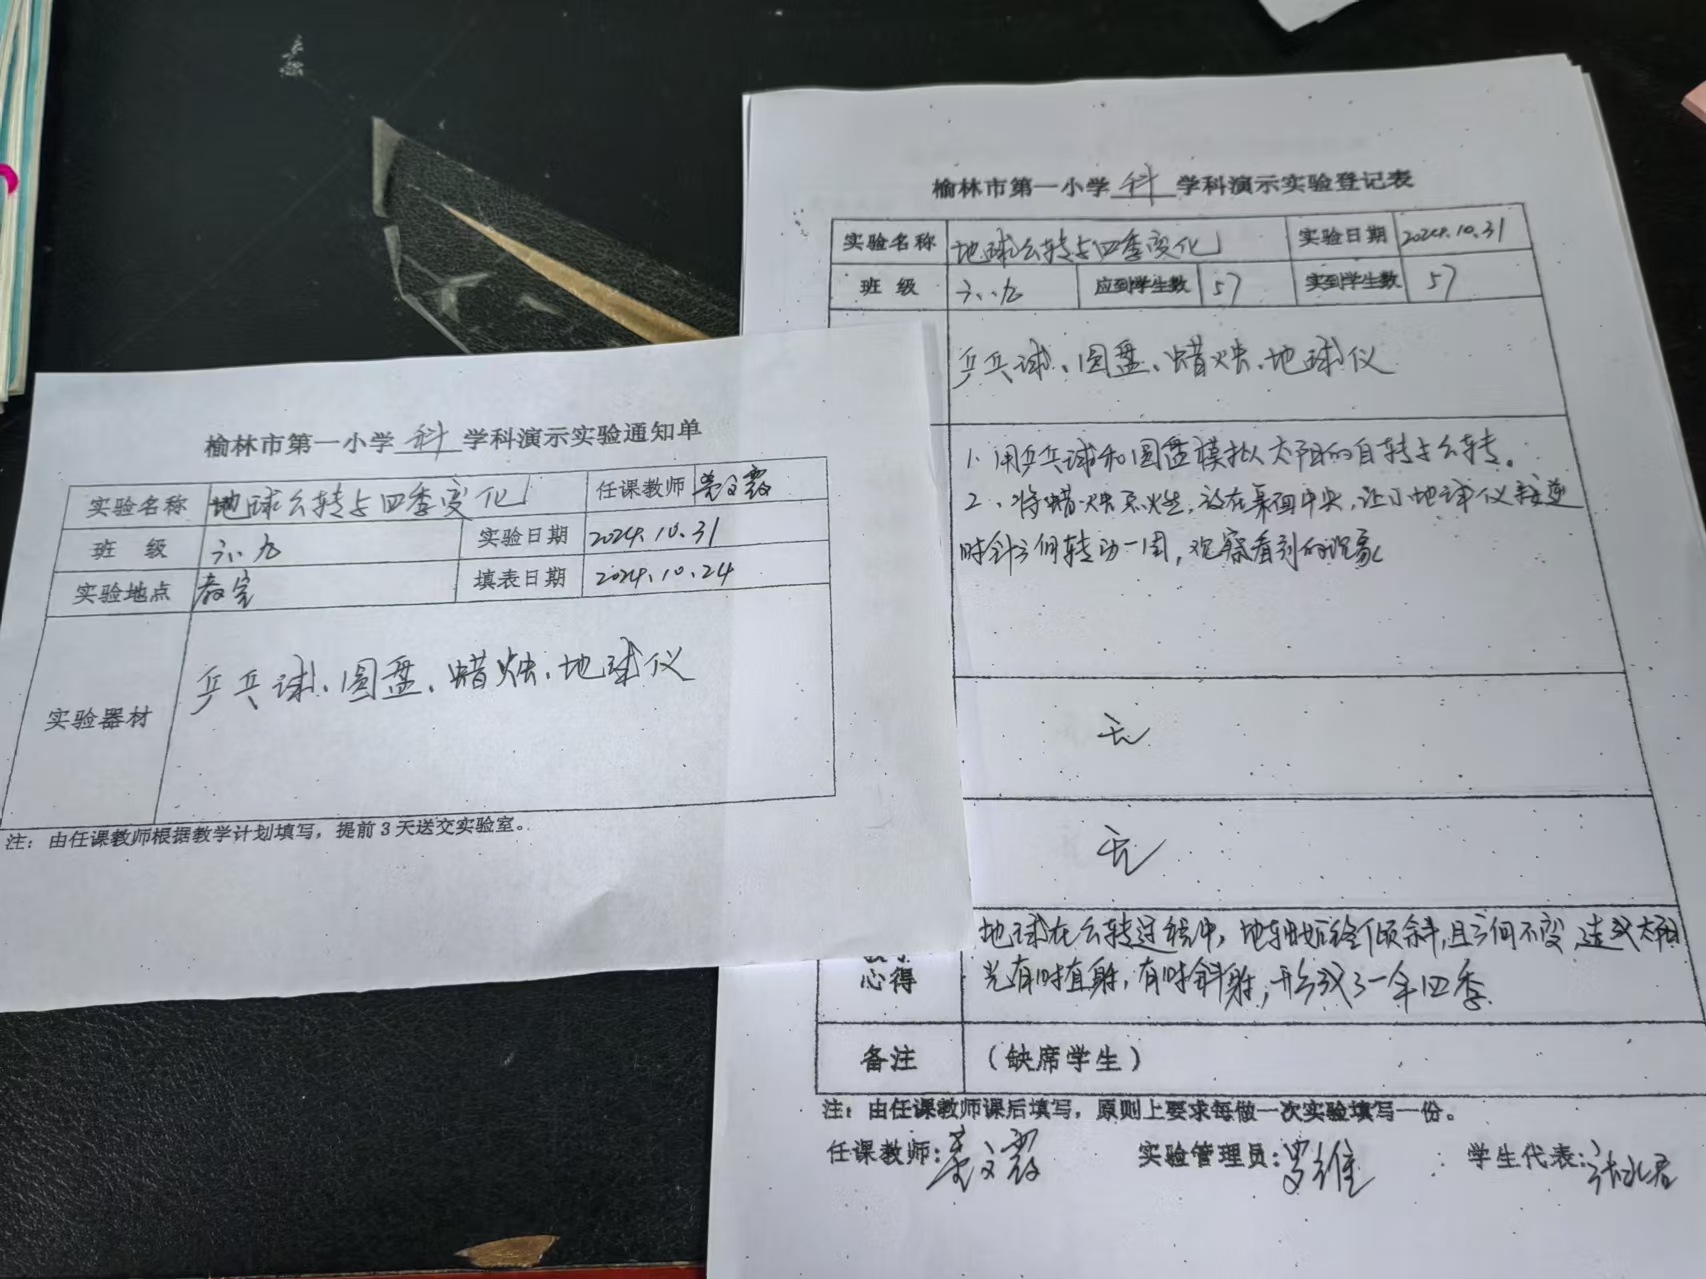 榆林市第一小学 科 学科演示实验通知单
实验名称 地球公转与四季变化 任课教师
班 级 六.九 实验日期 2024.10.31
实验地点 教室 填表日期 2024.10.24
实验器材 乒乓球、圆盘、蜡烛、地球仪
注：由任课教师根据教学计划填写，提前3天送交实验室。
榆林市第一小学 科 学科演示实验登记表
实验名称 地球公转与四季变化 实验日期 2024.10.31
班 级 六.九 应到学生数 57 实到学生数 57
乒乓球、圆盘、蜡烛、地球仪
1、用乒乓球和圆盘模拟太阳的自转与公转。
2、将蜡烛点燃，放在桌面中央，让小地球仪按逆
时针方向转动一周，观察看到的现象
无
无
地球在公转过程中，地轴始终倾斜，且方向不变，造成太阳
心得 光有时直射，有时斜射，形成了一年四季
备注 （缺席学生）
注：由任课教师课后填写，原则上要求每做一次实验填写一份。
任课教师: 实验管理员:罗维 学生代表: